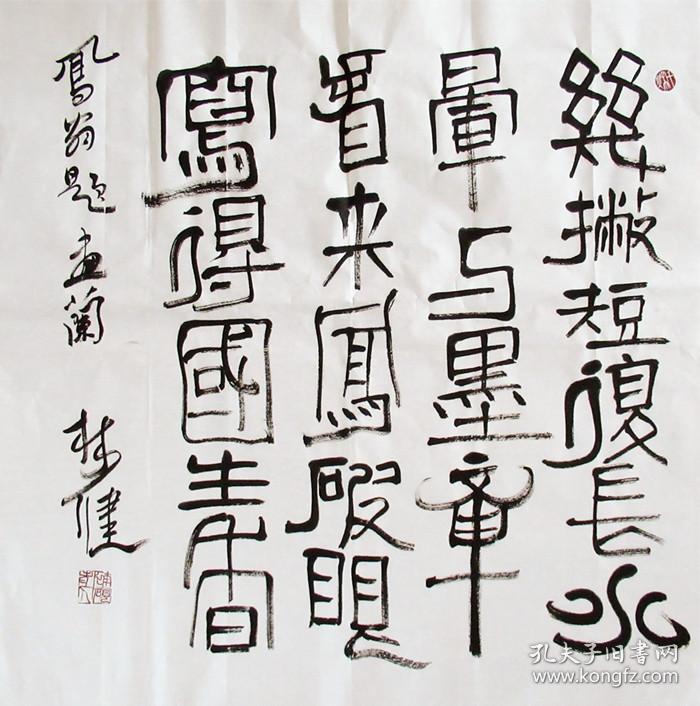 幾撇短復長水
暈与墨章
看来鳳破眼
寫得國生香
鳳翁題畫蘭 林健
孔夫子旧书网
www.kongfz.com